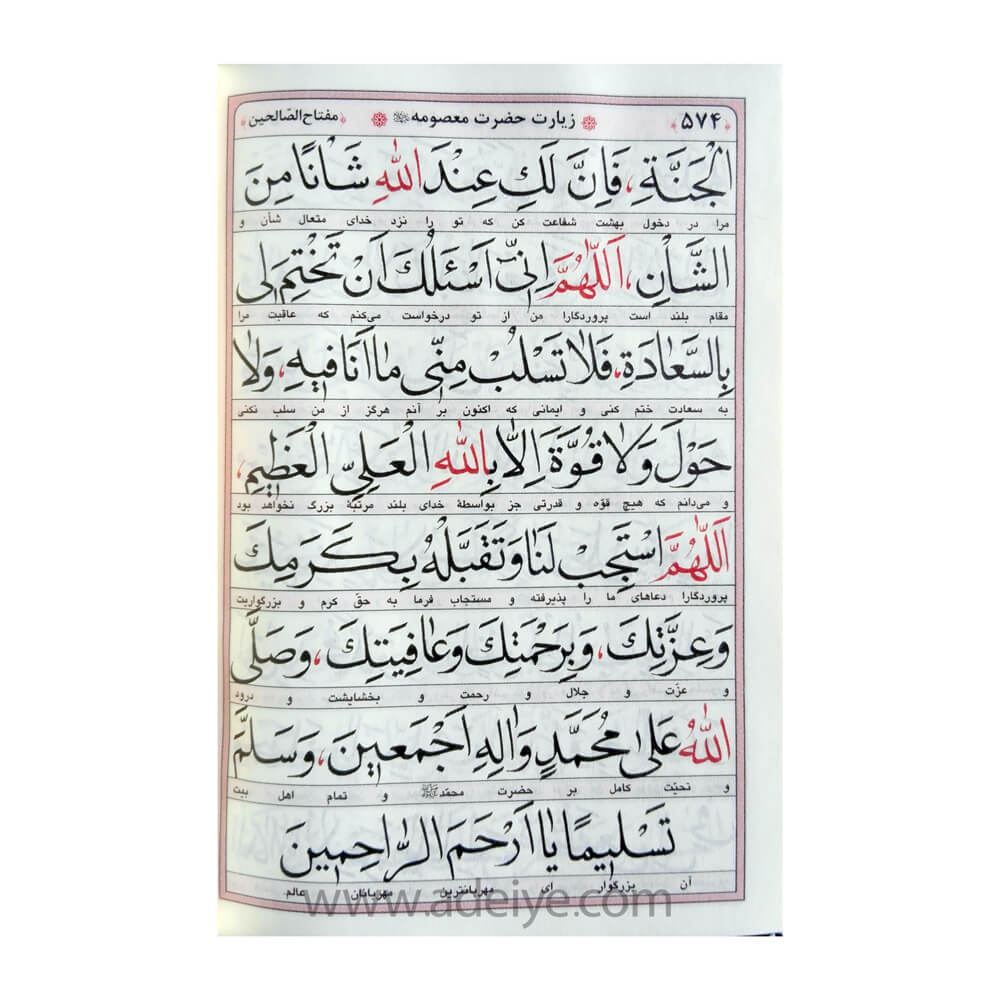 ۵۷۴ زیارت حضرت معصومه مفتاح الصّالحین
الْجَنَّةِ، فَاِنَّ لَكِ عِنْدَ اللّٰهِ شَأْنًا مِنَ
مرا در دخول بهشت شفاعت کن که تو را نزد خدای متعال شأن و
الشَّأْنِ، اَللّٰهُمَّ اِنّٖی اَسْئَلُكَ اَنْ تَخْتِمَ لٖی
مقام بلند است پروردگارا من از تو درخواست می‌کنم که عاقبت مرا
بِالسَّعٰادَةِ، فَلٰا تَسْلُبْ مِنّٖی مٰا اَنَا فٖیهِ، وَلٰا
به سعادت ختم کنی و ایمانی که اکنون بر آنم هرگز از من سلب نکنی
حَوْلَ وَلٰا قُوَّةَ اِلّٰا بِاللّٰهِ الْعَلِیِّ الْعَظٖیمِ،
و می‌دانم که هیچ قوّه و قدرتی جز بواسطهٔ خدای بلند مرتبهٔ بزرگ نخواهد بود
اَللّٰهُمَّ اسْتَجِبْ لَنٰا وَتَقَبَّلْهُ بِكَرَمِكَ
پروردگارا دعاهای ما را پذیرفته و مستجاب فرما به حقّ کرم و بزرگواریت
وَعِزَّتِكَ، وَبِرَحْمَتِكَ وَعٰافِیَتِكَ، وَصَلَّی
و عزّت و جلال و رحمت و بخشایشت و درود
اللّٰهُ عَلٰی مُحَمَّدٍ وَاٰلِهِ اَجْمَعٖینَ، وَسَلَّمَ
و تحیّت کامل بر حضرت محمّد ﷺ و تمام اهل بیت
تَسْلٖیمًا یٰا اَرْحَمَ الرّٰاحِمٖینَ
آن بزرگوار ای مهربانترین مهربانان عالم.
www.adeiye.com